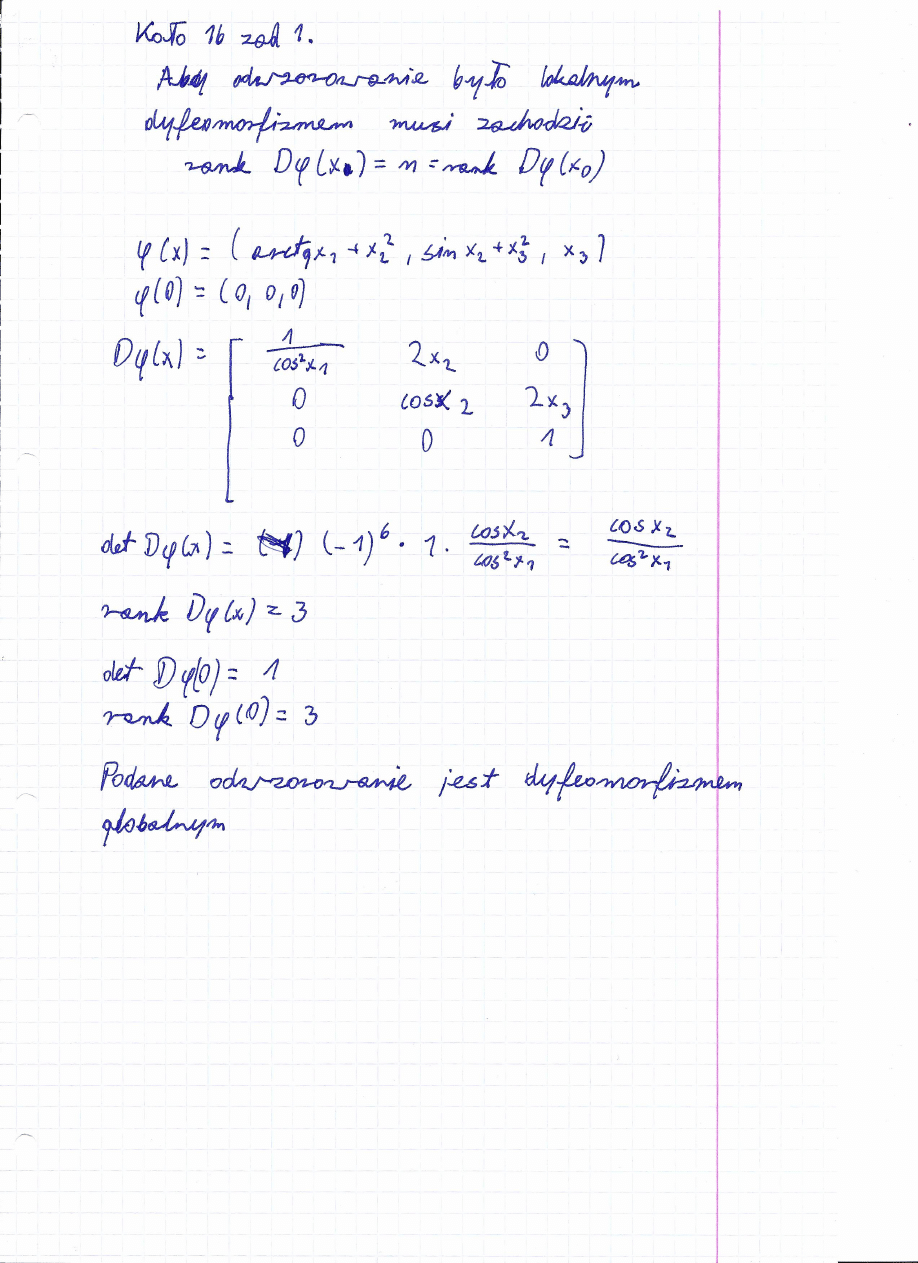 Koło 1b zad 1.
Aby odwzorowanie było lokalnym
dyfeomorfizmem musi zachodzić
rank Dφ(x) = n = rank Dφ(x₀)
φ(x) = (arctgx₁ + x₂², sin x₂ + x₃², x₃)
φ(0) = (0, 0, 0)
Dφ(x) = [ 1/cos²x₁ 2x₂ 0
0 cosx₂ 2x₃
0 0 1 ]
det Dφ(x) = (-1)⁶ · 1 · cosx₂/cos²x₁ = cos x₂/cos²x₁
rank Dφ(x) = 3
det Dφ(0) = 1
rank Dφ(0) = 3
Podane odwzorowanie jest dyfeomorfizmem
globalnym